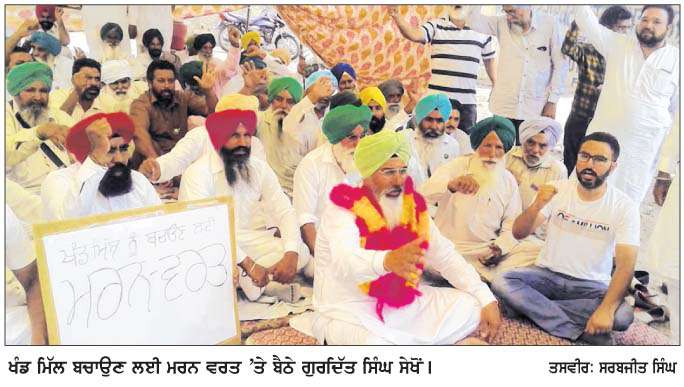 ਖੰਡ ਮਿੱਲ ਨੂੰ ਬਚਾਉਣ ਲਈ
ਮਰਨ-ਵਰਤ
ਖੰਡ ਮਿੱਲ ਬਚਾਉਣ ਲਈ ਮਰਨ ਵਰਤ 'ਤੇ ਬੈਠੇ ਗੁਰਦਿੱਤ ਸਿੰਘ ਸੇਖੋਂ।
ਤਸਵੀਰ: ਸਰਬਜੀਤ ਸਿੰਘ